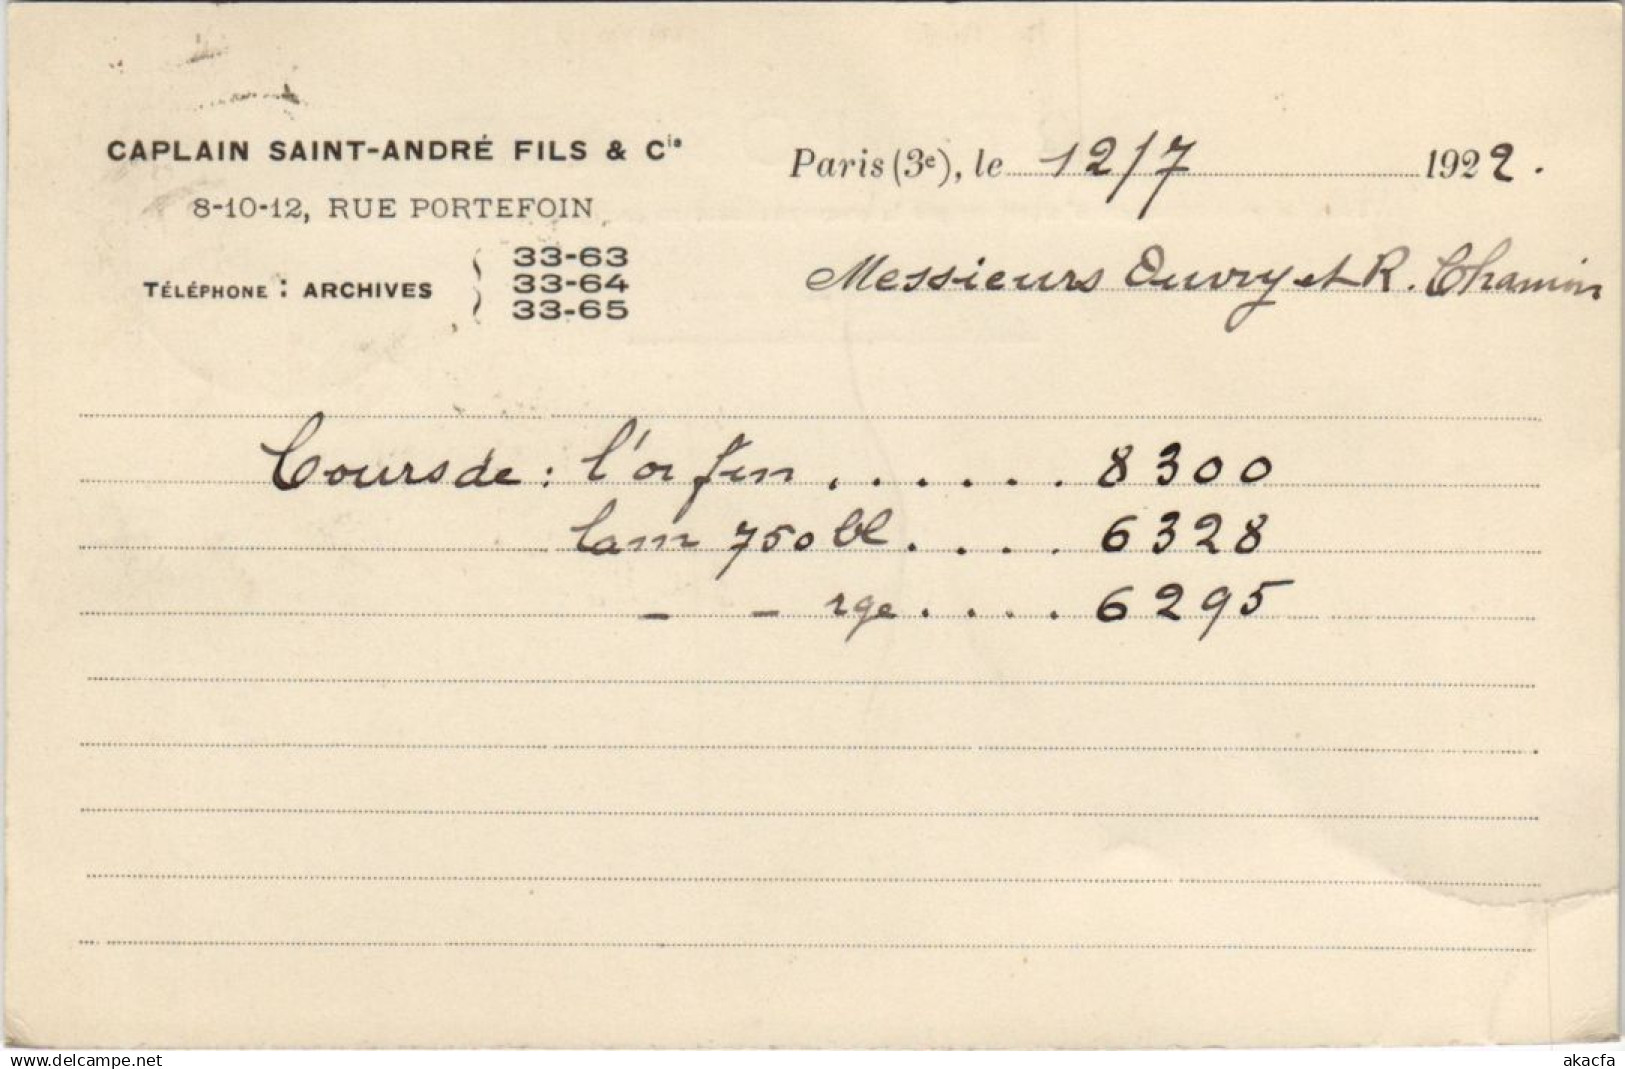 CAPLAIN SAINT-ANDRÉ FILS & Cie
8-10-12, RUE PORTEFOIN
TÉLÉPHONE : ARCHIVES { 33-63
33-64
33-65
Paris (3e), le 12/7 1922.
Messieurs Ouvry et R. Chamin
Cours de : l'or fin . . . . . . 8300
lam 750 bl . . . . 6328
– – rge . . . . 6295
www.delcampe.net
akacfa